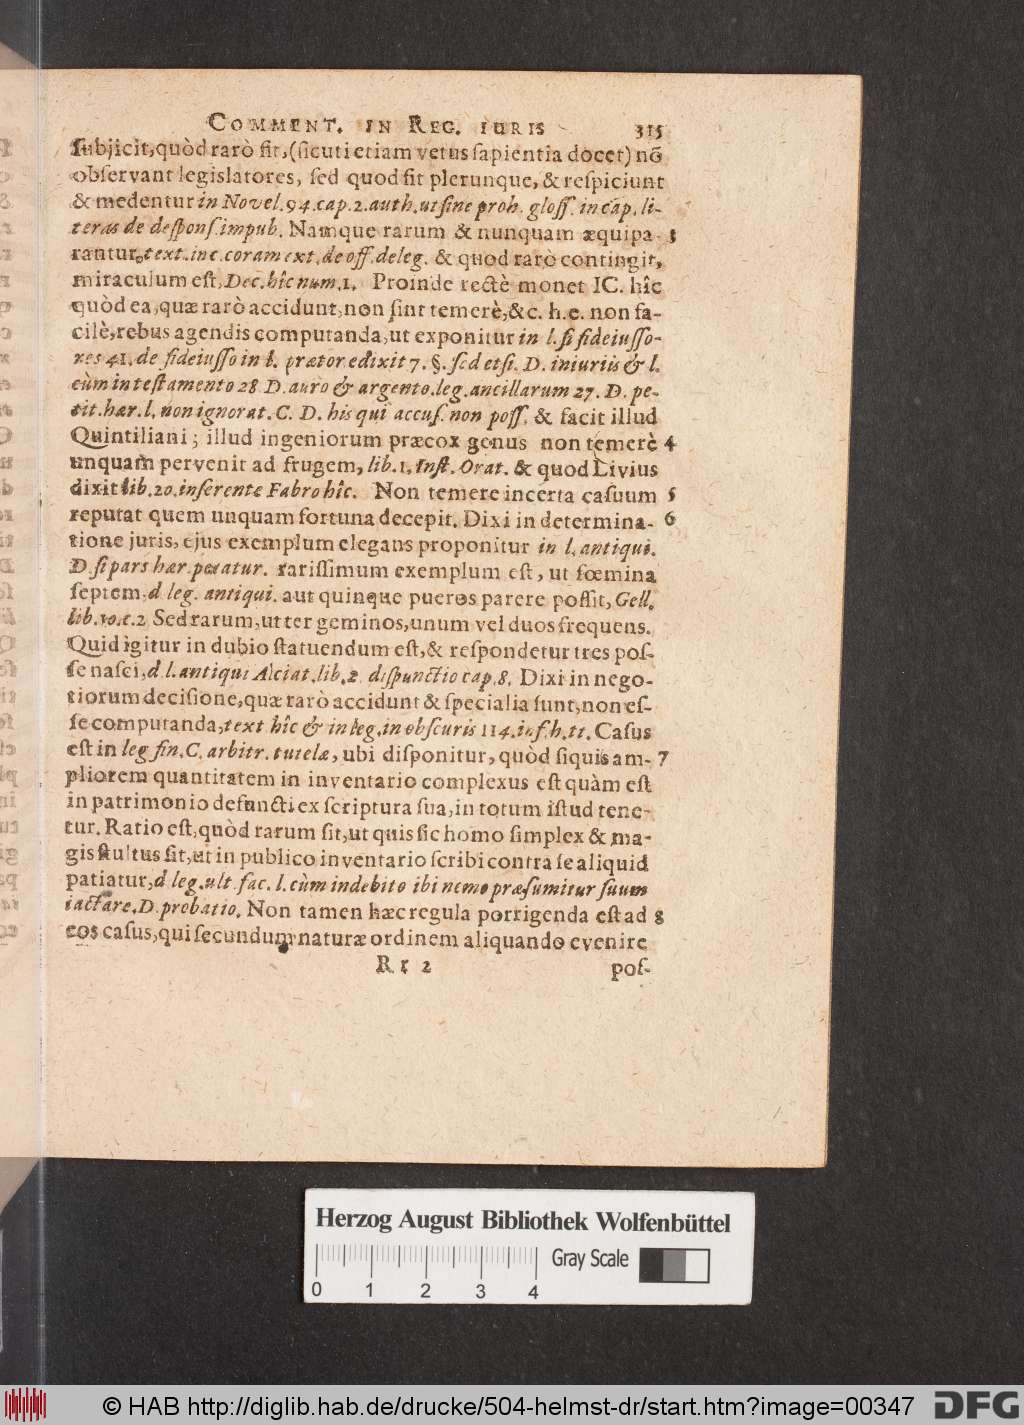 COMMENT. IN REG. IURIS 315
subjicit, quòd rarò fit, (sicuti etiam vetus sapientia docet) nō
observant legislatores, sed quod fit plerunque, & respiciunt
& medentur in Novel. 94. cap. 2. auth. ut sine proh. gloss. in cap. li-
teras de despons. impub. Namque rarum & nunquam æquipa- 3
rantur, text. in c. coram ext. de off. deleg. & quod rarò contingit,
miraculum est, Dec. hîc num. 1. Proinde rectè monet IC. hîc
quòd ea, quæ rarò accidunt, non sint temerè, &c. h. e. non fa-
cilè, rebus agendis computanda, ut exponitur in l. si fideiusso-
res 41. de fideiusso in l. prætor edixit 7. §. sed etsi. D. iniuriis & l.
cùm in testamento 28 D. auro & argento. leg. ancillarum 27. D. pe-
tit. hær. l. non ignorat. C. D. his qui accus. non poss. & facit illud
Quintiliani; illud ingeniorum præcox genus non temerè 4
unquam pervenit ad frugem, lib. 1. Inst. Orat. & quod Livius
dixit lib. 20. inserente Fabro hîc. Non temere incerta casuum 5
reputat quem unquam fortuna decepit. Dixi in determina- 6
tione juris, ejus exemplum elegans proponitur in l. antiqui.
D. si pars hær. petatur. rarissimum exemplum est, ut fœmina
septem, d leg. antiqui. aut quinque pueros parere possit, Gell.
lib. 10. c. 2 Sed rarum, ut ter geminos, unum vel duos frequens.
Quid igitur in dubio statuendum est, & respondetur tres pos-
se nasci, d l. antiqui Alciat. lib. 2. dispunctio cap. 8. Dixi in nego-
tiorum decisione, quæ rarò accidunt & specialia sunt, non es-
se computanda, text hîc & in leg. in obscuris 114. inf. h. tt. Casus
est in leg fin. C. arbitr. tutelæ, ubi disponitur, quòd si quis am- 7
pliorem quantitatem in inventario complexus est quàm est
in patrimonio defuncti ex scriptura sua, in totum istud tene-
tur. Ratio est, quòd rarum sit, ut quis sic homo simplex & ma-
gis stultus sit, ut in publico inventario scribi contra se aliquid
patiatur, d leg. ult. fac. l. cùm indebito ibi nemo præsumitur suum
iactare. D. probatio. Non tamen hæc regula porrigenda est ad 8
eos casus, qui secundum naturæ ordinem aliquando evenire
Rr 2 pos-
Herzog August Bibliothek Wolfenbüttel
Gray Scale
0 1 2 3 4
© HAB http://diglib.hab.de/drucke/504-helmst-dr/start.htm?image=00347 DFG